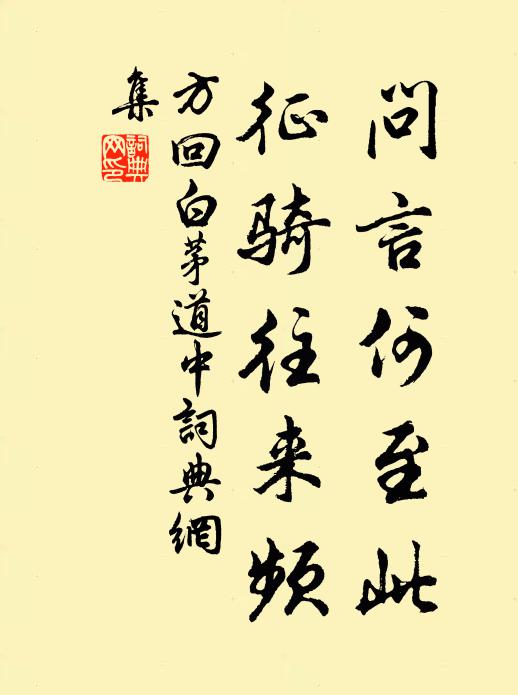 问言何至此
征骑往来频
方回白茅道中詞典網
集
詞典网印